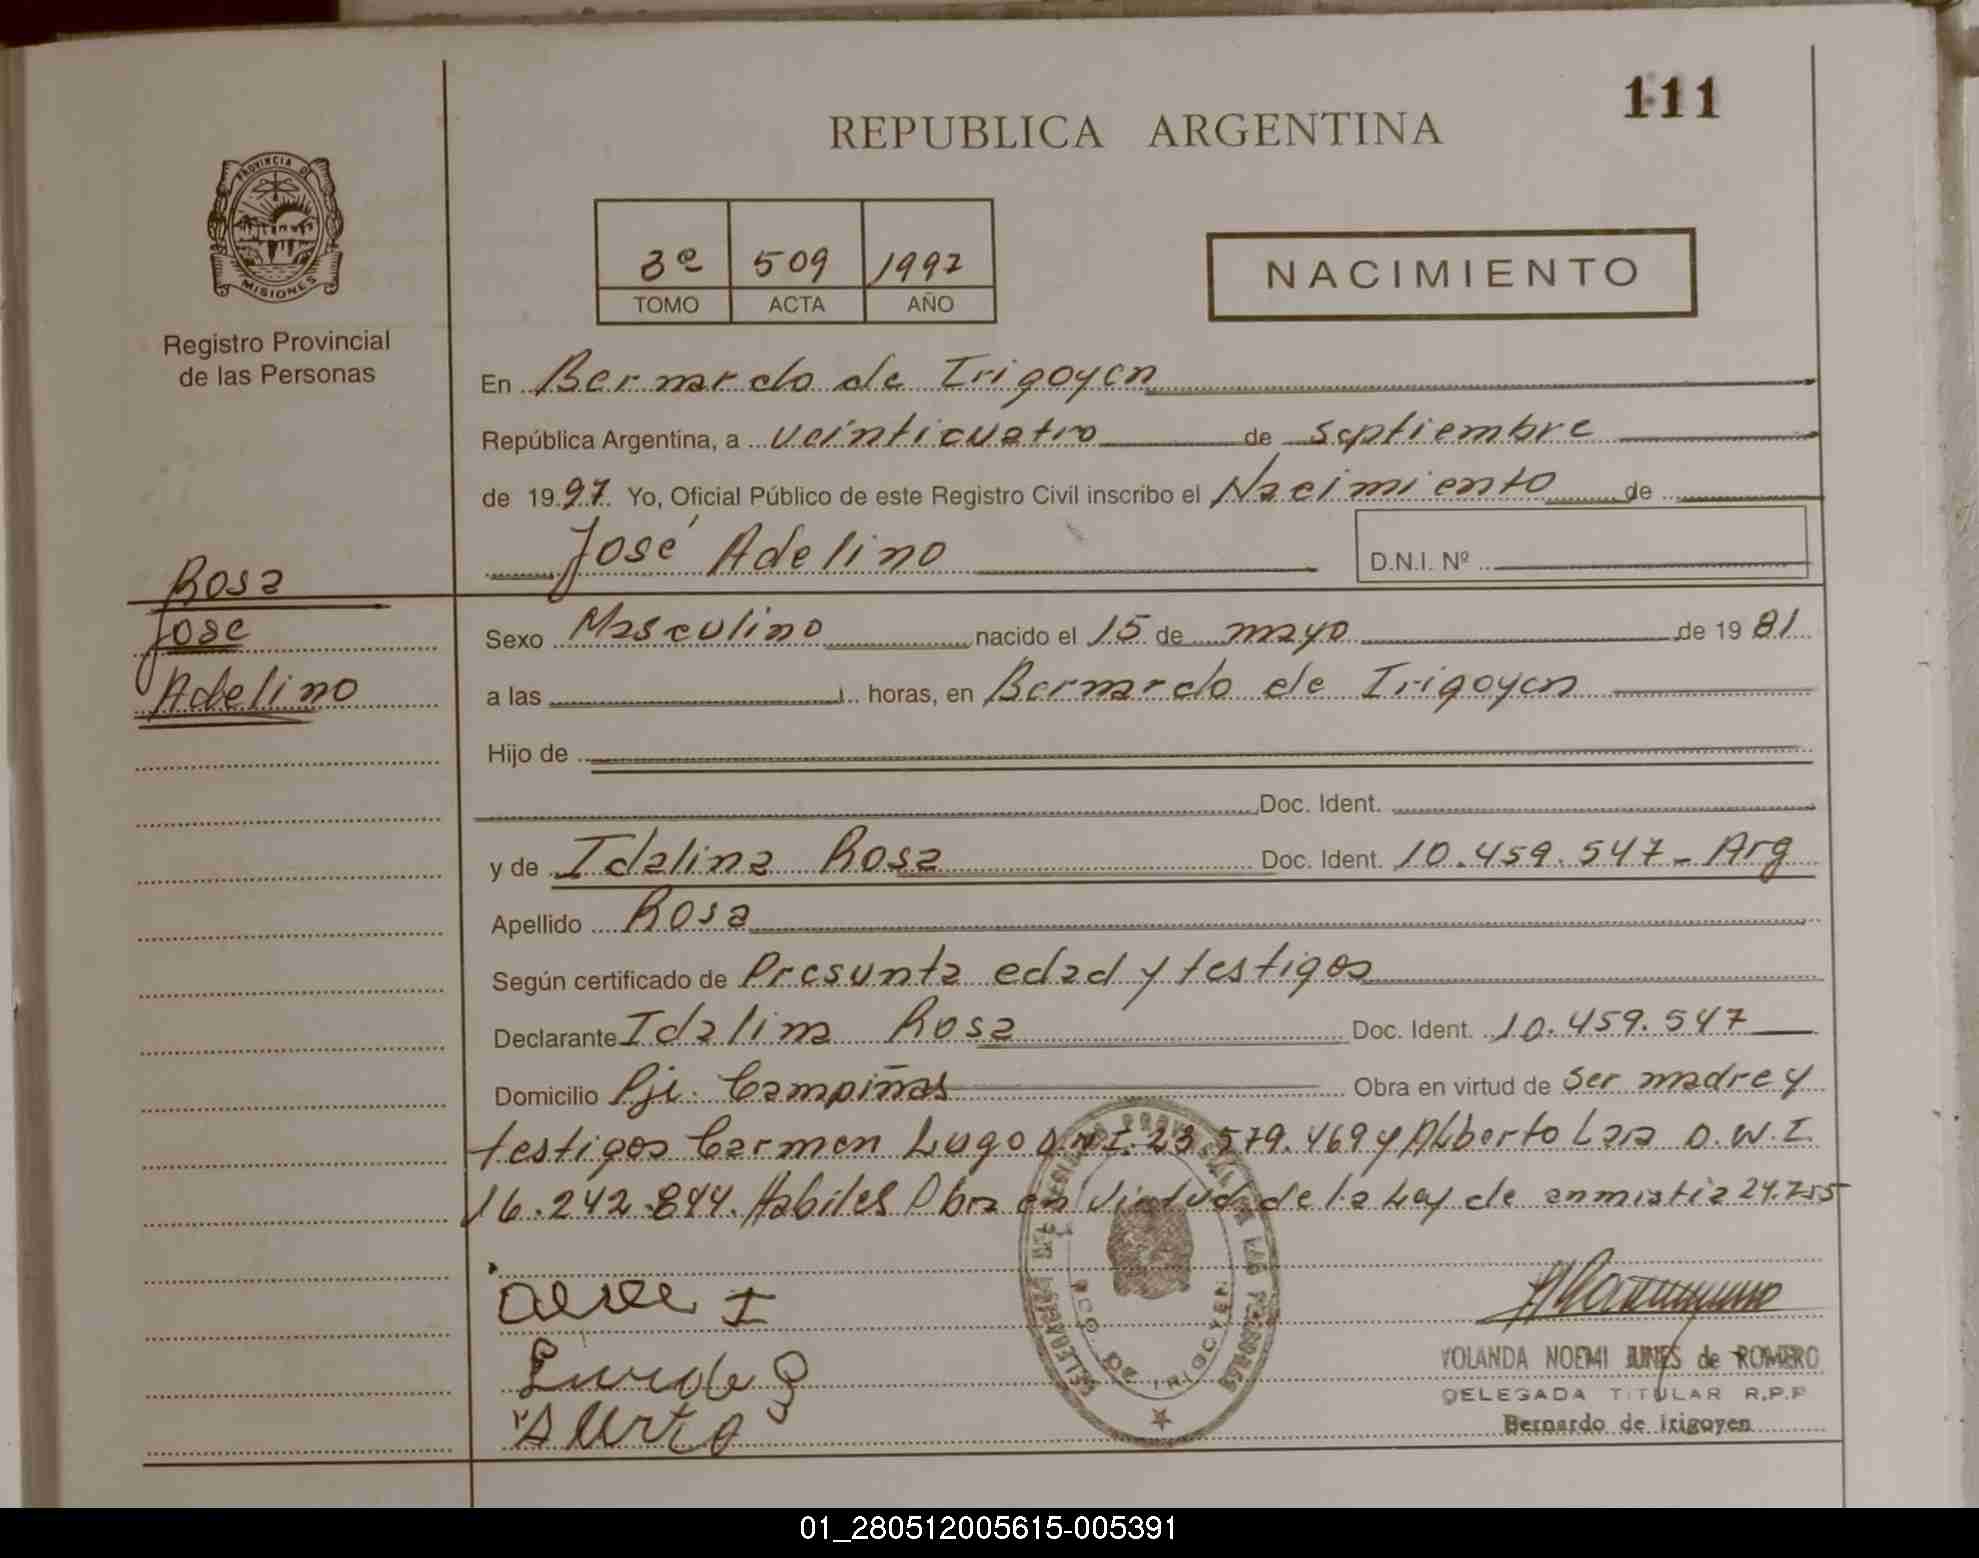 111
REPUBLICA ARGENTINA
PROVINCIA DE
MISIONES
Registro Provincial
de las Personas
3º 509 1997
TOMO ACTA AÑO
NACIMIENTO
En Bernardo de Irigoyen
República Argentina, a veinticuatro de septiembre
de 19 97 Yo, Oficial Público de este Registro Civil inscribo el Nacimiento de
José Adelino
D.N.I. Nº
Rosa
Jose
Adelino
Sexo Masculino nacido el 15 de mayo de 19 81
a las horas, en Bernardo de Irigoyen
Hijo de
Doc. Ident.
y de Idalina Rosa Doc. Ident. 10.459.547- Arg
Apellido Rosa
Según certificado de Presunta edad y testigos
Declarante Idalina Rosa Doc. Ident. 10.459.547
Domicilio Pje. Campiñas Obra en virtud de ser madre y
testigos Carmen Lugo D.N.I. 23.579.469 y Alberto Lara D.N.I.
16.242.844. Habiles Obra en virtud de la Ley de anmistia 24.755
YOLANDA NOEMI JUNES de ROMERO
DELEGADA TITULAR R.P.P
Bernardo de Irigoyen
BDO. DE IRIGOYEN
01_280512005615-005391